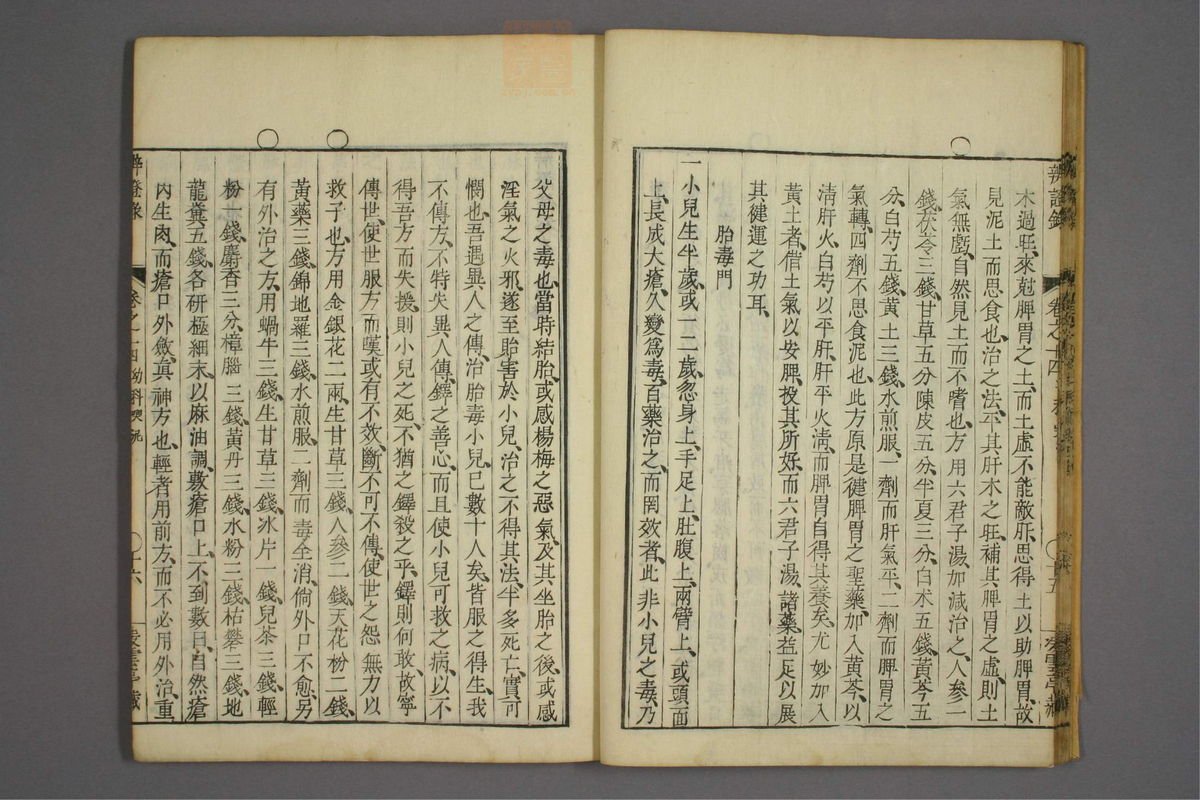 辨證錄 卷之十四 十五
木過旺、來尅脾胃之土、而土虛不能敵肝、思得土以助脾胃、故
見泥土而思食也、治之法、平其肝木之旺、補其脾胃之虛、則土
氣無虧、自然見土而不嗜也、方用六君子湯加減治之、人參一
錢、茯苓三錢、甘草五分、陳皮五分、半夏三分、白朮五錢、黃芩五
分、白芍五錢、黃土三錢、水煎服、一劑而肝氣平、二劑而脾胃之
氣轉、四劑不思食泥也、此方原是健脾胃之聖藥、加入黃芩、以
淸肝火、白芍以平肝、肝平火淸、而脾胃自得其養矣、尤妙加入
黃土者、借土氣以安脾、投其所好、而六君子湯、諸藥益足以展
其健運之功耳、
胎毒門
一小兒生半歲、或一二歲、忽身上、手足上、肚腹上、兩臂上、或頭面
上、長成大瘡、久變爲毒、百藥治之、而罔效者、此非小兒之毒、乃
父母之毒也、當時結胎、或感楊梅之惡氣、及其坐胎之後、或感
淫氣之火邪、遂至貽害於小兒、治之不得其法、半多死亡、實可
憫也、吾遇異人之傳、治胎毒小兒、已數十人矣、皆服之得生、我
不傳方、不特失異人傳鐸之善心、而且使小兒可救之病、以不
得吾方而失援、則小兒之死、不猶之鐸殺之乎、鐸則何敢、故寧
傳世、使世服方而嘆或有不效、斷不可不傳、使世之怨無力以
救子也、方用金銀花二兩、生甘草三錢、人參二錢、天花粉二錢、
黃藥三錢、錦地羅三錢、水煎服、二劑而毒全消、倘外口不愈、另
有外治之方、用蝸牛三錢、生甘草三錢、冰片一錢、兒茶三錢、輕
粉一錢、麝香三分、樟腦三錢、黃丹三錢、水粉三錢、枯礬三錢、地
龍糞五錢、各研極細末、以麻油調、敷瘡口上、不到數日、自然瘡
內生肉、而瘡口外斂、眞神方也、輕者用前方、而不必用外治、重
辨證錄 卷之十四 幼科 十六